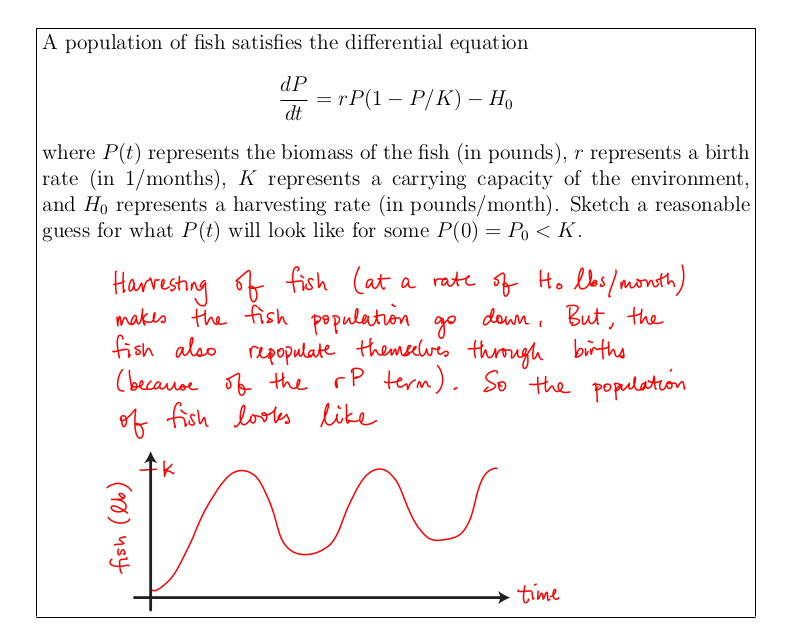 A population of fish satisfies the differential equation
dP/dt = rP(1 − P/K) − H₀
where P(t) represents the biomass of the fish (in pounds), r represents a birth
rate (in 1/months), K represents a carrying capacity of the environment,
and H₀ represents a harvesting rate (in pounds/month). Sketch a reasonable
guess for what P(t) will look like for some P(0) = P₀ < K.
Harvesting of fish (at a rate of H₀ lbs/month)
makes the fish population go down. But, the
fish also repopulate themselves through births
(because of the rP term). So the population
of fish looks like
K
fish (lb)
time